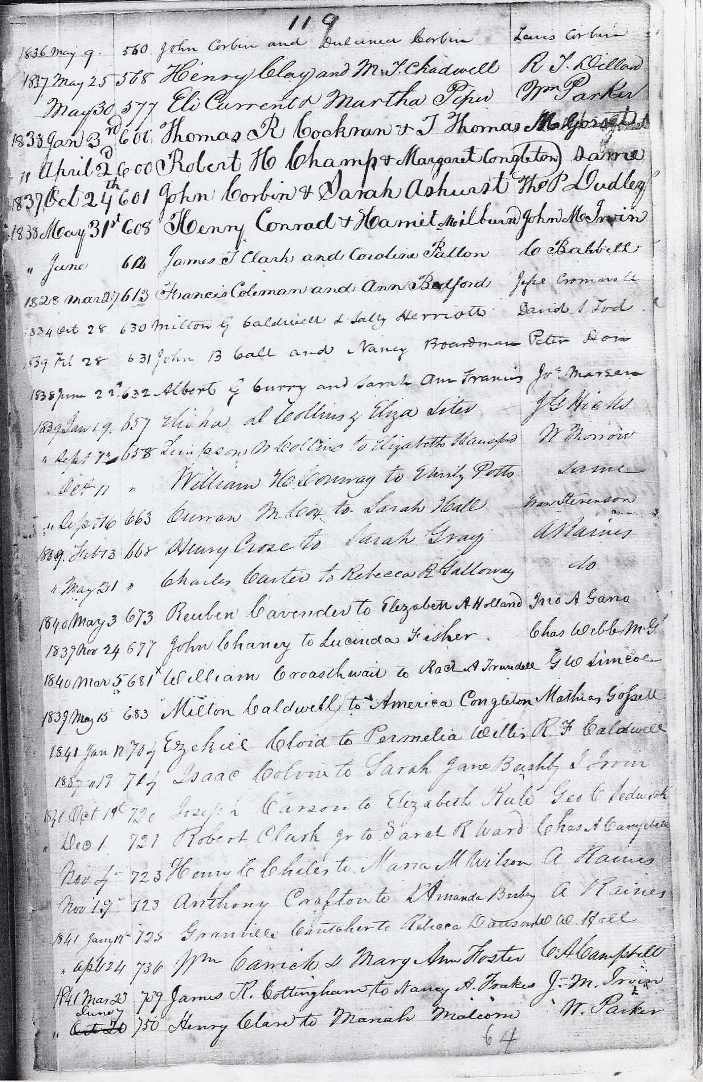 119
1836 May 9. 560 John Corbin and Dulcinea Corbin Lewis Corbin
1837 May 25 568 Henry Clay and M. T. Chadwell R. T. Dillard
May 30 577 Eli Current & Martha Piper Wm Parker
1833 Jan 3rd 600 Thomas R Cockran & T Thomas
" April 2d 600 Robert H Champ & Margaret Congleton Same
1837 Oct 24th 601 John Corbin & Sarah Ashurst Thos P Dudley
1838 May 31st 608 Henry Conrad & Harriet Milburn John M Irvin
" June 612 James T Clark and Caroline Patton C Babbell
1828 Mar 27 613 Francis Coleman and Ann Bedford Jesse
1834 Oct 28 630 Milton G Caldwell & Sally Herriott David S Tod
1839 Feb 28 631 John B Call and Nancy Boardman Peter Hon
1838 June 632 Albert G Curry and Sarah Ann Francis Jos
1839 Jan 19. 657 Elisha Collins & Eliza Sites J G Hicks
" Sept 658 Collins to Elizabeth W Morrow
" Oct 11 " William H Conway to Emily Potts same
" Sept 16 663 Curran M Cox to Sarah Hall Stevenson
1839. Feb 13 668 Henry Crose to Sarah Gray A Raines
" May 21 " Charles Carter to Rebecca R Galloway do
1840 May 3 673 Reuben Cavender to Elizabeth A Holland Jno A Gano
1837 Nov 24 677 John Chaney to Lucinda Fisher. Chas Webb M.G.
1840 Mar 5 681 William Croasthwait to Rach A Trundell G W Simcoe
1839 May 15 683 Milton Caldwell to America Congleton Mathias Gossett
1841 Jan 12 Ezekiel Cloid to Permelia Wells R. F Caldwell
Isaac Colvin to Sarah Jane Bashby J Irvin
Oct Joseph Carson to Elizabeth Geo C Sedwick
" Dec 1 721 Robert Clark Jr to Sarah R Ward Chas A Campbell
Nov 4 723 Henry C Chiles to Maria M Wilson A Raines
Nov 19 723 Anthony Crafton to Amanda Busby A Raines
1841 Jany 725 Granville to Rebecca Dawson W W Hall
" Apl 24 736 Wm Carrick & Mary Ann Foster C A Campbell
1841 Mar 23 739 James R. Cottingham to Nancy A. Foakes J. M. Irvin
June 7
" Oct 20 750 Henry Claw to Mariah Malcom W. Parker
64